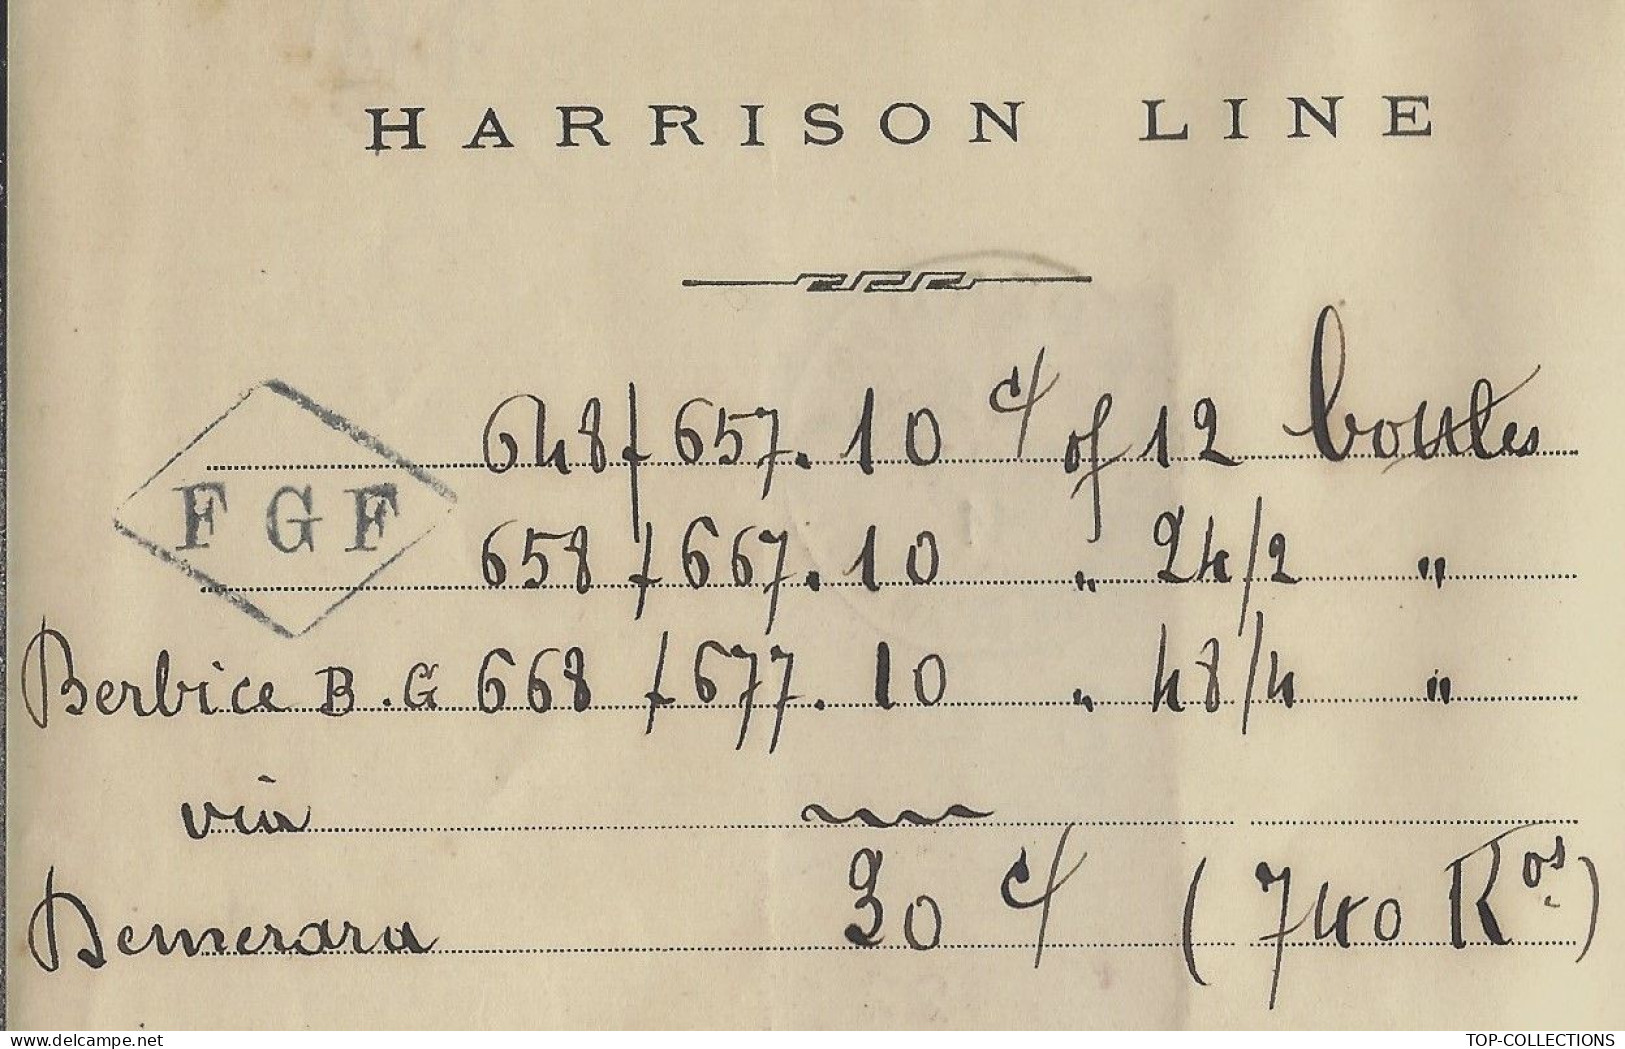 HARRISON LINE
648/657. 10 c/ of 12 bottles
FGF
658/667. 10 " 24/2 "
Berbice B.G 668/677. 10 " 48/4 "
via
Demerara 30 c/ (740 Kos.)
delcampe.net
TOP-COLLECTIONS